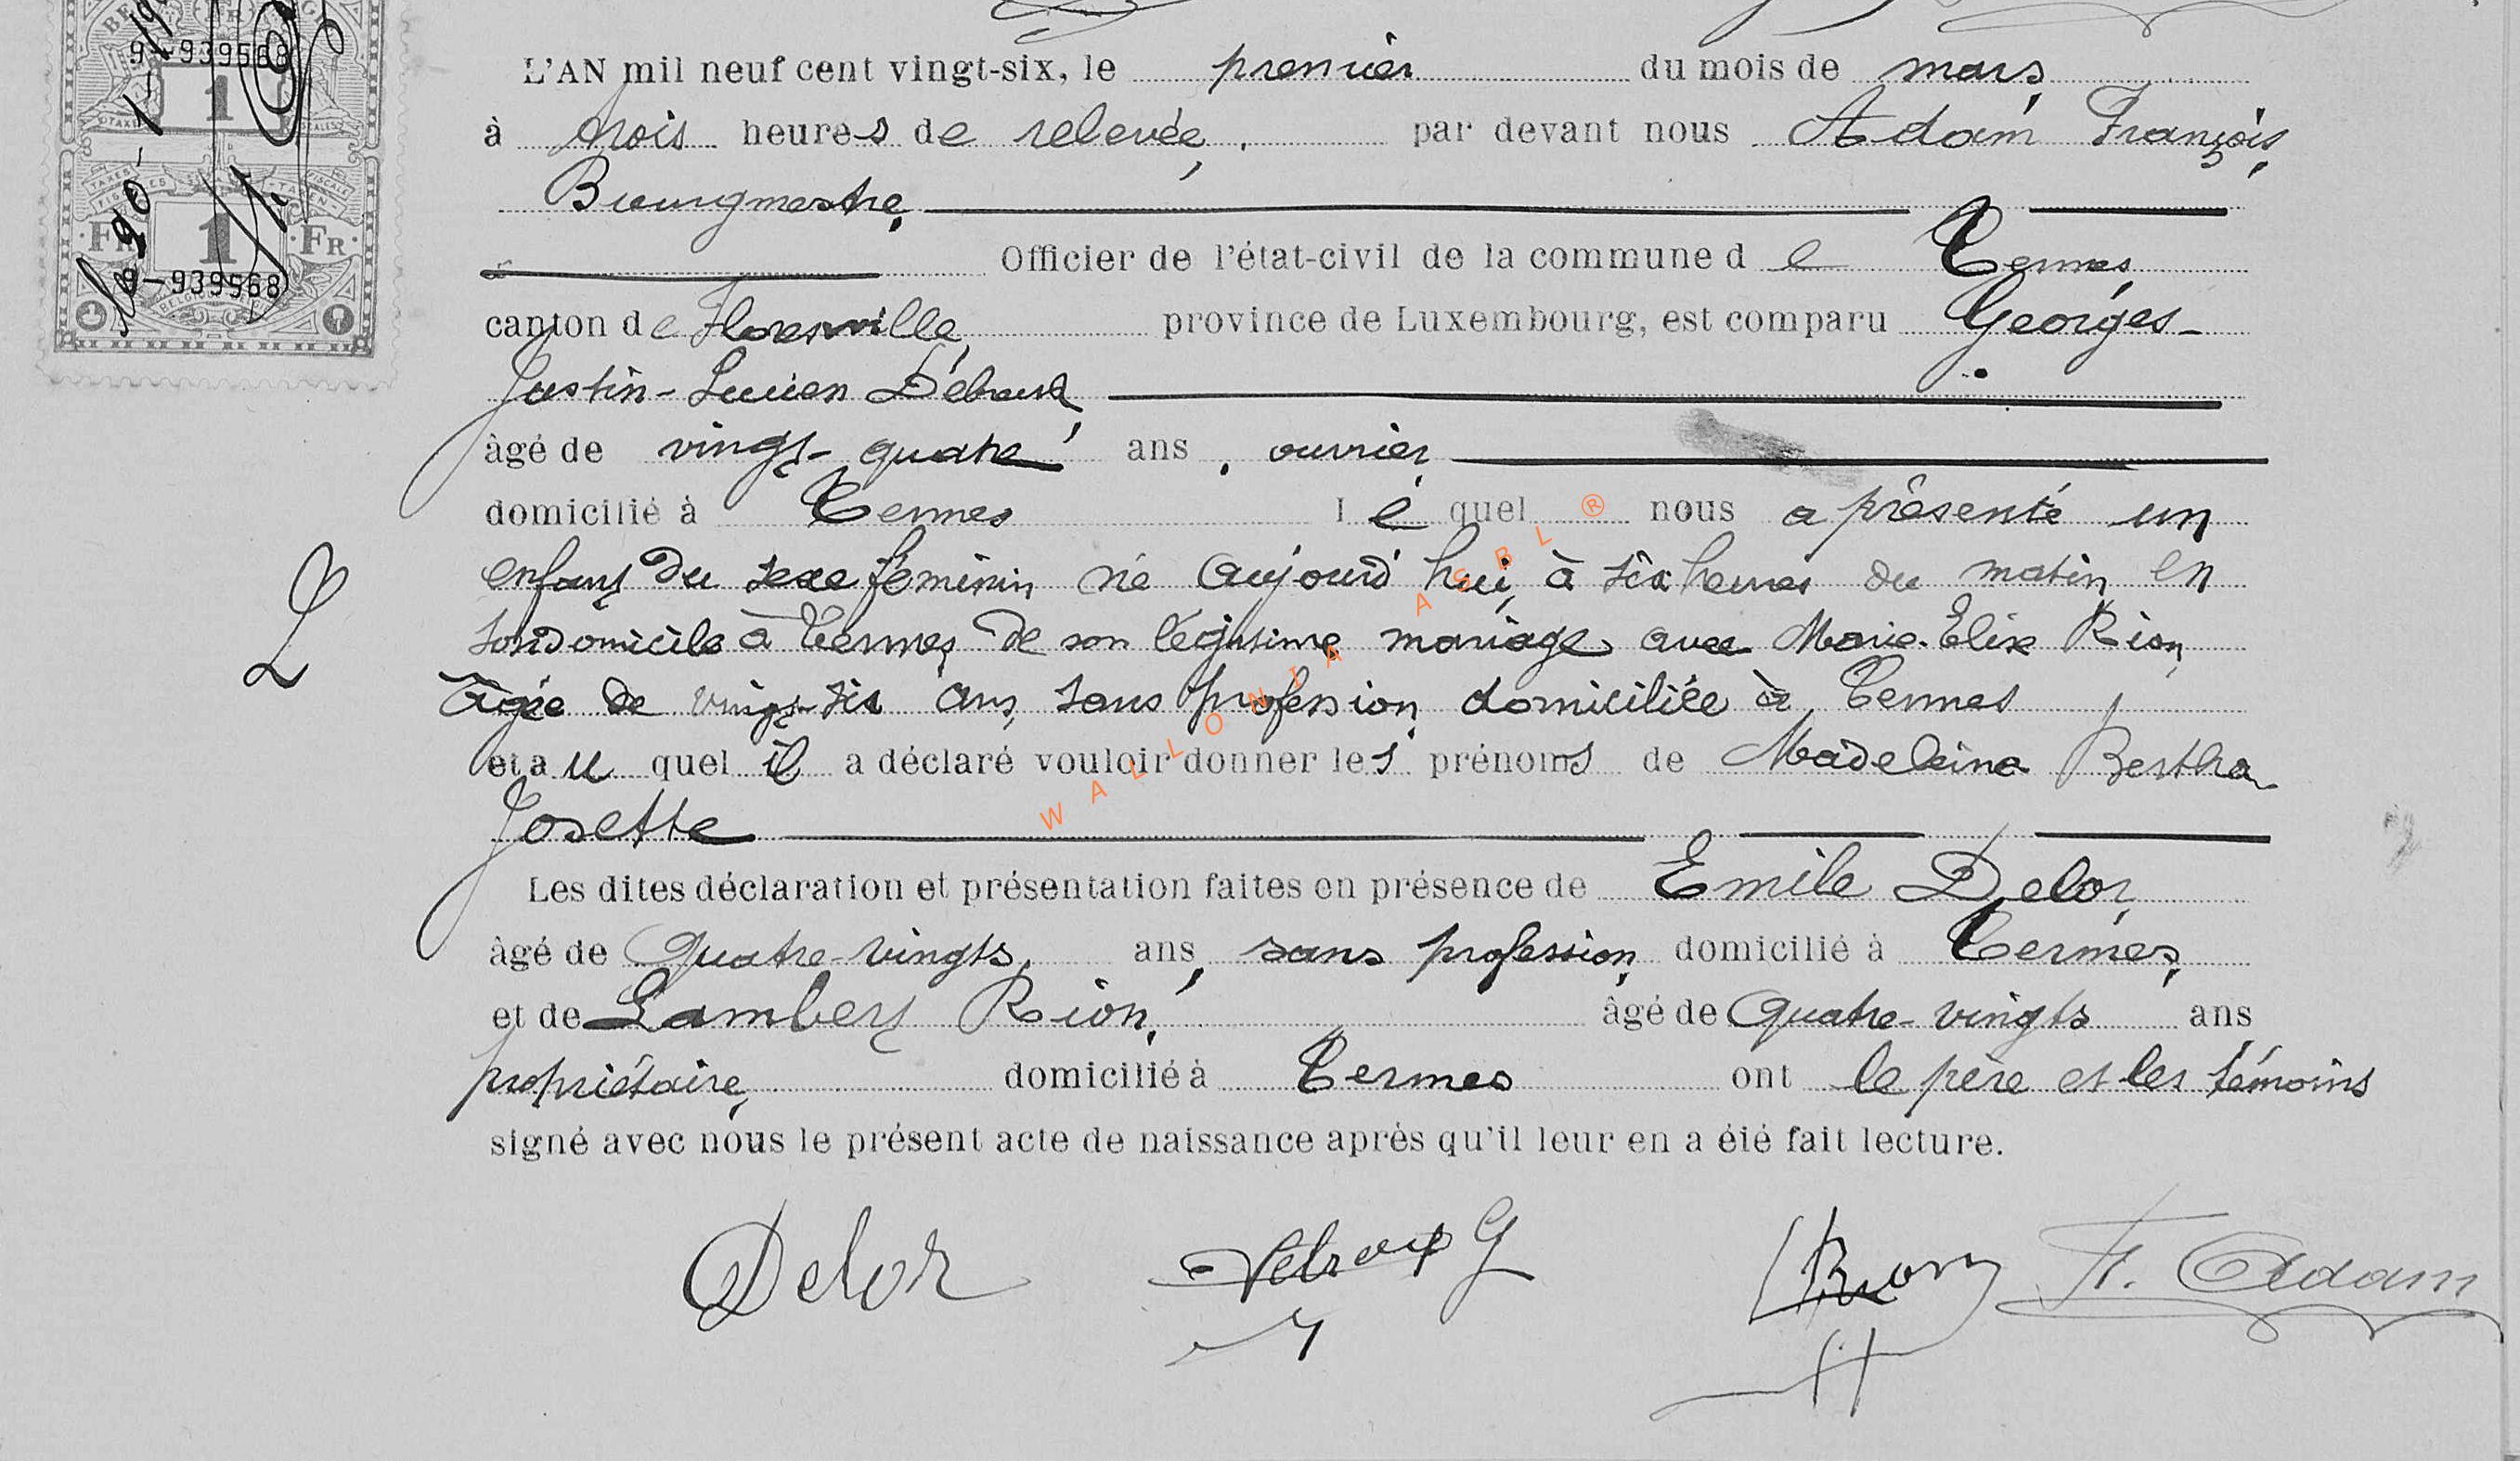 9-939568
1
TAXES FISCALES
FR 1 FR
9-939568
L'AN mil neuf cent vingt-six, le premier du mois de mars,
à trois heures de relevée, par devant nous Adam François,
Bourgmestre,
Officier de l'état-civil de la commune de Termes,
canton de Florenville, province de Luxembourg, est comparu Georges-
Justin-Lucien Debroux,
âgé de vingt-quatre ans, ouvrier,
domicilié à Termes lequel nous a présenté un
enfant du sexe féminin né aujourd'hui, à six heures du matin, en
son domicile à Termes, de son légitime mariage avec Marie-Elise Rion,
âgée de vingt-six ans, sans profession, domiciliée à Termes
et auquel il a déclaré vouloir donner les prénoms de Madeleine Bertha
Josette
Les dites déclaration et présentation faites en présence de Emile Delor,
âgé de quatre-vingts, ans, sans profession, domicilié à Termes,
et de Lambert Rion, âgé de quatre-vingts ans,
propriétaire, domicilié à Termes ont le père et les témoins
signé avec nous le présent acte de naissance après qu'il leur en a été fait lecture.
Delor Debroux G Rion F. Adam
WALLONIA ASBL ®